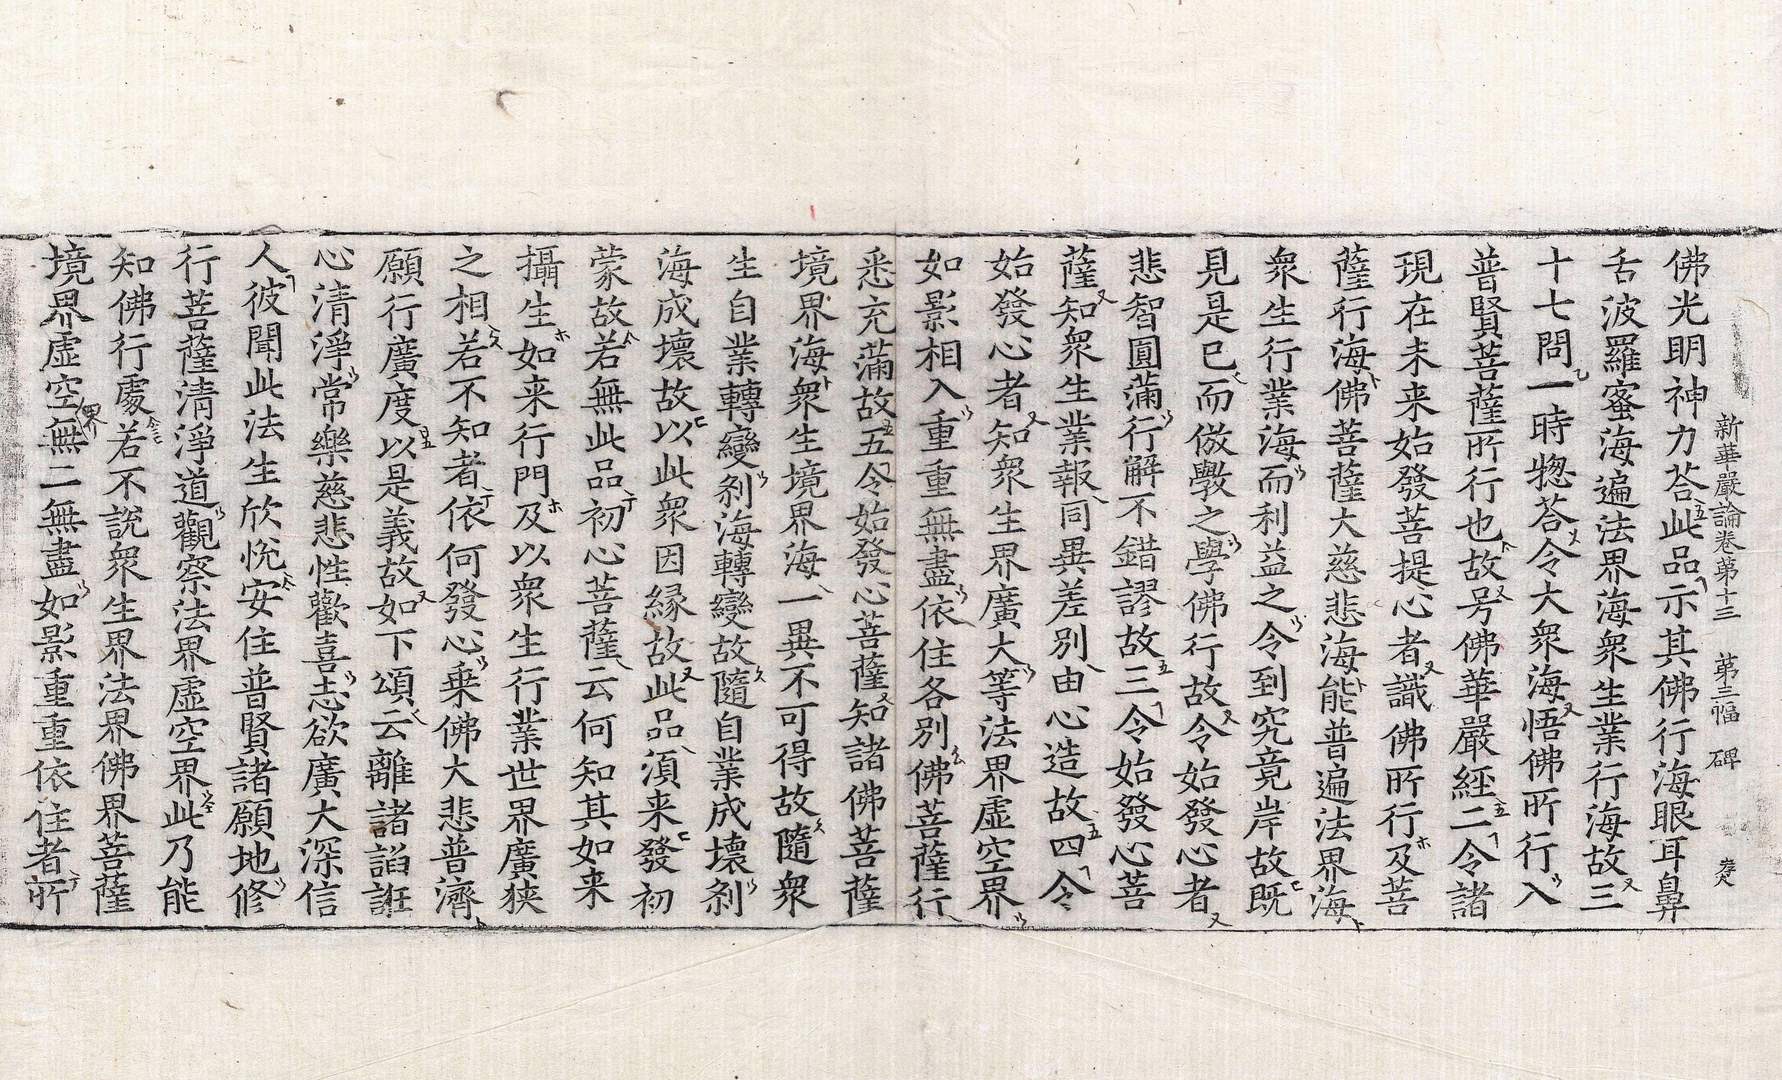 新華嚴論卷第十三　第三幅　碑
佛光明神力荅此品示其佛行海眼耳鼻
舌波羅蜜海遍法界海衆生業行海故三
十七問一時惣荅令大衆海悟佛所行入
普賢菩薩所行也故号佛華嚴經二令諸
現在未来始發菩提心者識佛所行及菩
薩行海佛菩薩大慈悲海能普遍法界海
衆生行業海而利益之令到究竟岸故既
見是已而倣斅之學佛行故令始發心者
悲智圓滿行解不錯謬故三令始發心菩
薩知衆生業報同異差別由心造故四令
始發心者知衆生界廣大等法界虛空界
如影相入重重無盡依住各別佛菩薩行
悉充滿故五令始發心菩薩知諸佛菩薩
境界海衆生境界海一異不可得故隨衆
生自業轉變刹海轉變故隨自業成壞刹
海成壞故以此衆因縁故此品湏来發初
蒙故若無此品初心菩薩云何知其如来
攝生如来行門及以衆生行業世界廣狹
之相若不知者依何發心乗佛大悲普濟
願行廣度以是義故如下頌云離諸諂誑
心清淨常樂慈悲性歡喜志欲廣大深信
人彼聞此法生欣悅安住普賢諸願地修
行菩薩清淨道觀察法界虛空界此乃能
知佛行處若不說衆生界法界佛界菩薩
境界虛空界無二無盡如影重重依住者所